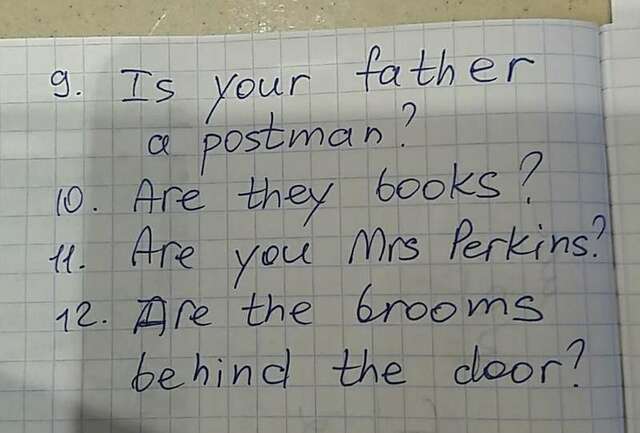 9. Is your father
a postman?
10. Are they books?
11. Are you Mrs Perkins?
12. Are the brooms
behind the door?